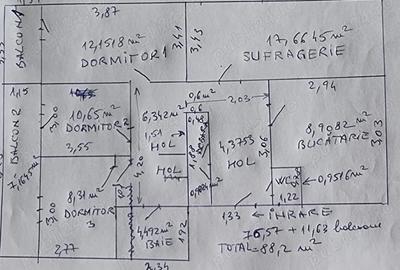 3,87
BALCON 1
12,1518 m²
DORMITOR 1
3,41
3,43
17,6645 m²
SUFRAGERIE
1,15
BALCON 2
3,00
10,65 m²
DORMITOR 2
3,55
0,6 m²
0,6
2,03
2,94
6,342 m²
1,51
HOL
HOL
4,20
1,88
4,3753
HOL
3,06
8,9082 m²
BUCATARIE
3,03
8,31 m²
DORMITOR
3
3,00
2,77
WC
0,9516 m²
1,22
4,492 m²
BAIE
1,92
2,34
1,33 ← INRARE
76,57 + 11,63 balcoane
TOTAL = 88,2 m²